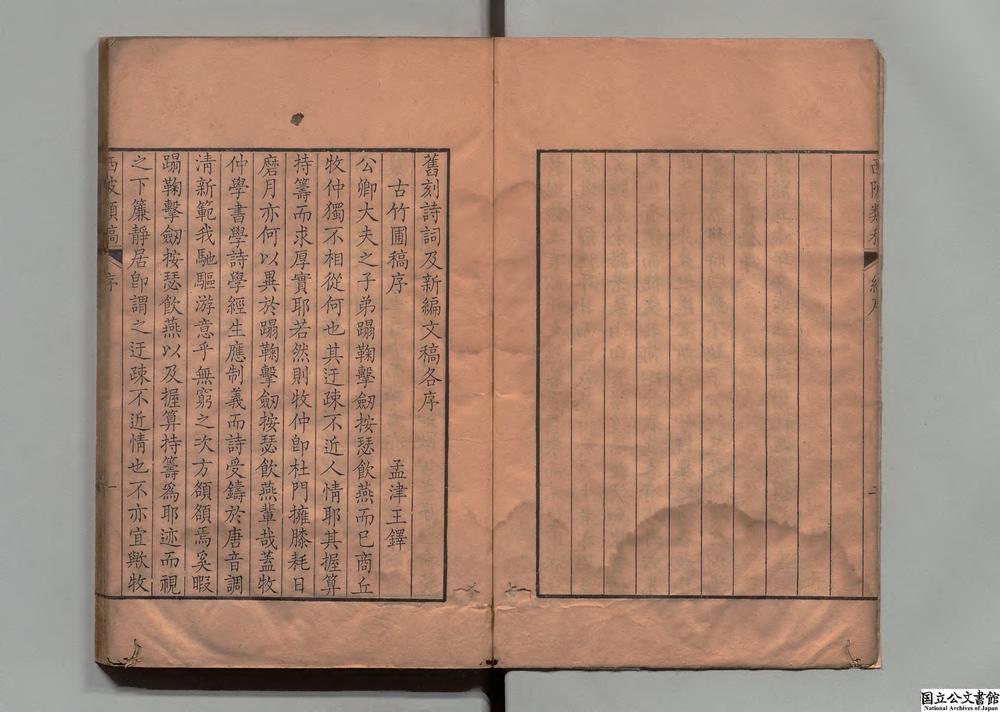 舊刻詩詞及新編文稿各序
古竹圃稿序
孟津王鐸
公卿大夫之子弟蹋鞠擊劒按瑟飲燕而已商丘
牧仲獨不相從何也其迂疎不近人情耶其握算
持籌而求厚實耶若然則牧仲卽杜門擁膝耗日
磨月亦何以異於蹋鞠擊劒按瑟飲燕輩哉蓋牧
仲學書學詩學經生應制義而詩受鑄於唐音調
清新範我馳驅游意乎無窮之次方頟頟焉奚暇
蹋鞠擊劒按瑟飲燕以及握算持籌爲耶迹而視
之下簾靜居卽謂之迂疎不近情也不亦宜歟牧
西陂類稿
序
一
国立公文書館
National Archives of Japan